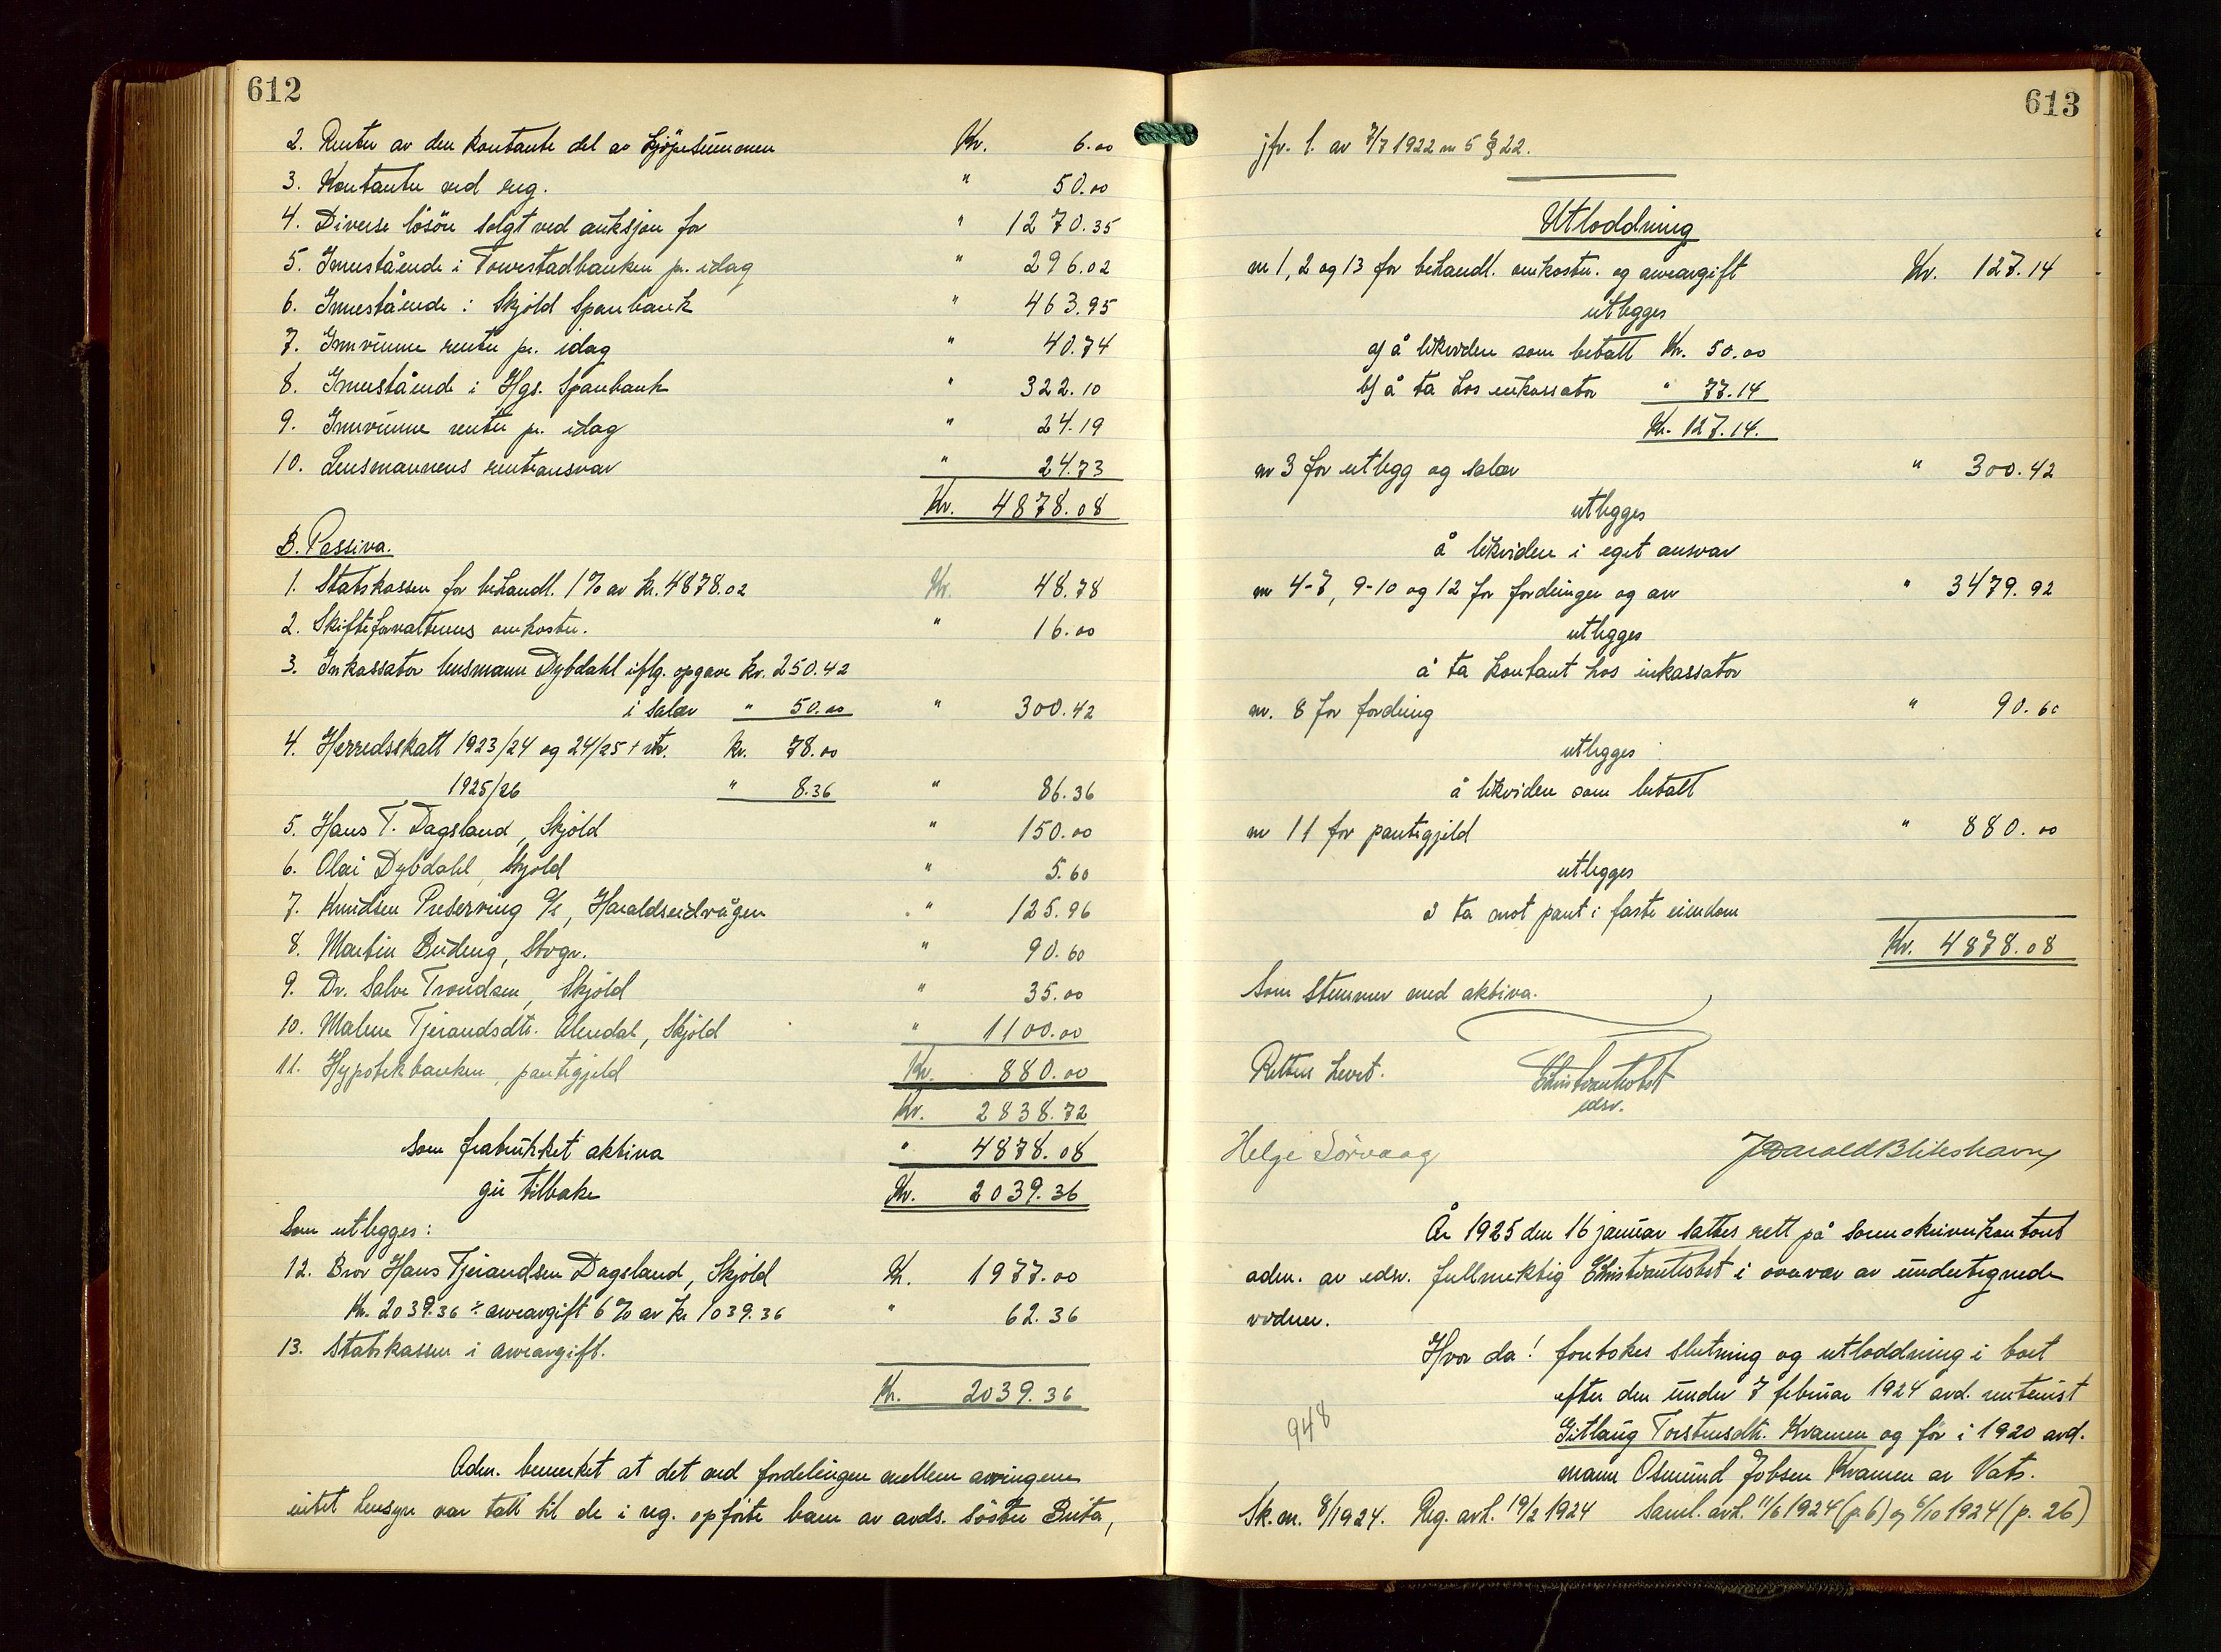 612
2. Renter av den kontante del av kjøpesummen Kr. 6.00
3. Kontanter ved reg. " 50.00
4. Diverse løsøre solgt ved auksjon for " 1270.35
5. Innestående i Towestadbanken pr. idag " 296.02
6. Innestående i Skjold Sparebank " 463.95
7. Innvunne renter pr. idag " 40.74
8. Innestående i Hgs. Sparebank " 322.10
9. Innvunne renter pr. idag " 24.19
10. Lensmannens renteansvar " 24.73
Kr. 4878.08
B. Passiva.
1. Statskassen for behandl. 1% av kr. 4878.02 Kr. 48.78
2. Skifteforvalterens omkostn. " 16.00
3. Inkassator lensmann Dybdahl iflg. opgave kr. 250.42
i salær " 50.00 " 300.42
4. Herredsskatt 1923/24 og 24/25 + rtr. kr. 78.00
1925/26 " 8.36 " 86.36
5. Hans T. Dagsland, Skjold " 150.00
6. Olai Dybdahl, Skjold " 5.60
7. Knudsen Preserving A/S, Haraldseidvågen " 125.96
8. Martin Budeng, Stvgr. " 90.60
9. Dr. Salve Trondsen, Skjold " 35.00
10. Malene Tjerandsdtr. Alendal, Skjold " 1100.00
11. Hypotekbanken, pantegjeld Kr. 880.00
Kr. 2838.72
som fratrukket aktiva " 4878.08
gir tilbake Kr. 2039.36
Som utlegges:
12. Bror Hans Tjerandsen Dagsland, Skjold Kr. 1977.00
Kr. 2039.36 ÷ arveavgift 6% av kr 1039.36 " 62.36
13. Statskassen i arveavgift.
Kr. 2039.36
Adm. bemerket at det ved fordelingen mellem arvingene
intet hensyn var tatt til de i reg. opførte barn av avds. søster Brita,
613
jfr. l. av 7/7 1922 nr 5 § 22.
Utloddning
nr 1, 2 og 13 for behandl. omkostn. og arveavgift Kr. 127.14
utlegges
a) å likvidere som betalt Kr. 50.00
b) å ta hos inkassator " 77.14
Kr. 127.14.
nr 3 for utlegg og salær " 300.42
utlegges
å likvidere i eget ansvar
nr 4-7, 9-10 og 12 for fordringer og arv " 3479.92
utlegges
å ta kontant hos inkassator
nr. 8 for fordring " 90.60
utlegges
å likvidere som betalt
nr 11 for pantegjeld " 880.00
utlegges
å ta mot pant i faste eiendom
Kr. 4878.08
Som stemmer med aktiva.
Retten hevet.
edsv.
Helge Sørvaag
År 1925 den 16 januar sattes rett på sorenskriverkontoret
adm. av edsv. fullmektig i overvær av undertegnede
vidner.
Hvor da! foretokes slutning og utloddning i boet
efter den under 7 februar 1924 avd. rentenist
Gitlaug Torstensdtr. Kvamen og før i 1920 avd.
mann Osmund Jobsen Kvamen av Vats.
948
Sk. nr. 8/1924. Reg. avh. 19/2 1924 Saml. avh. 11/6 1924 (p. 6) og 6/10 1924 (p. 26)